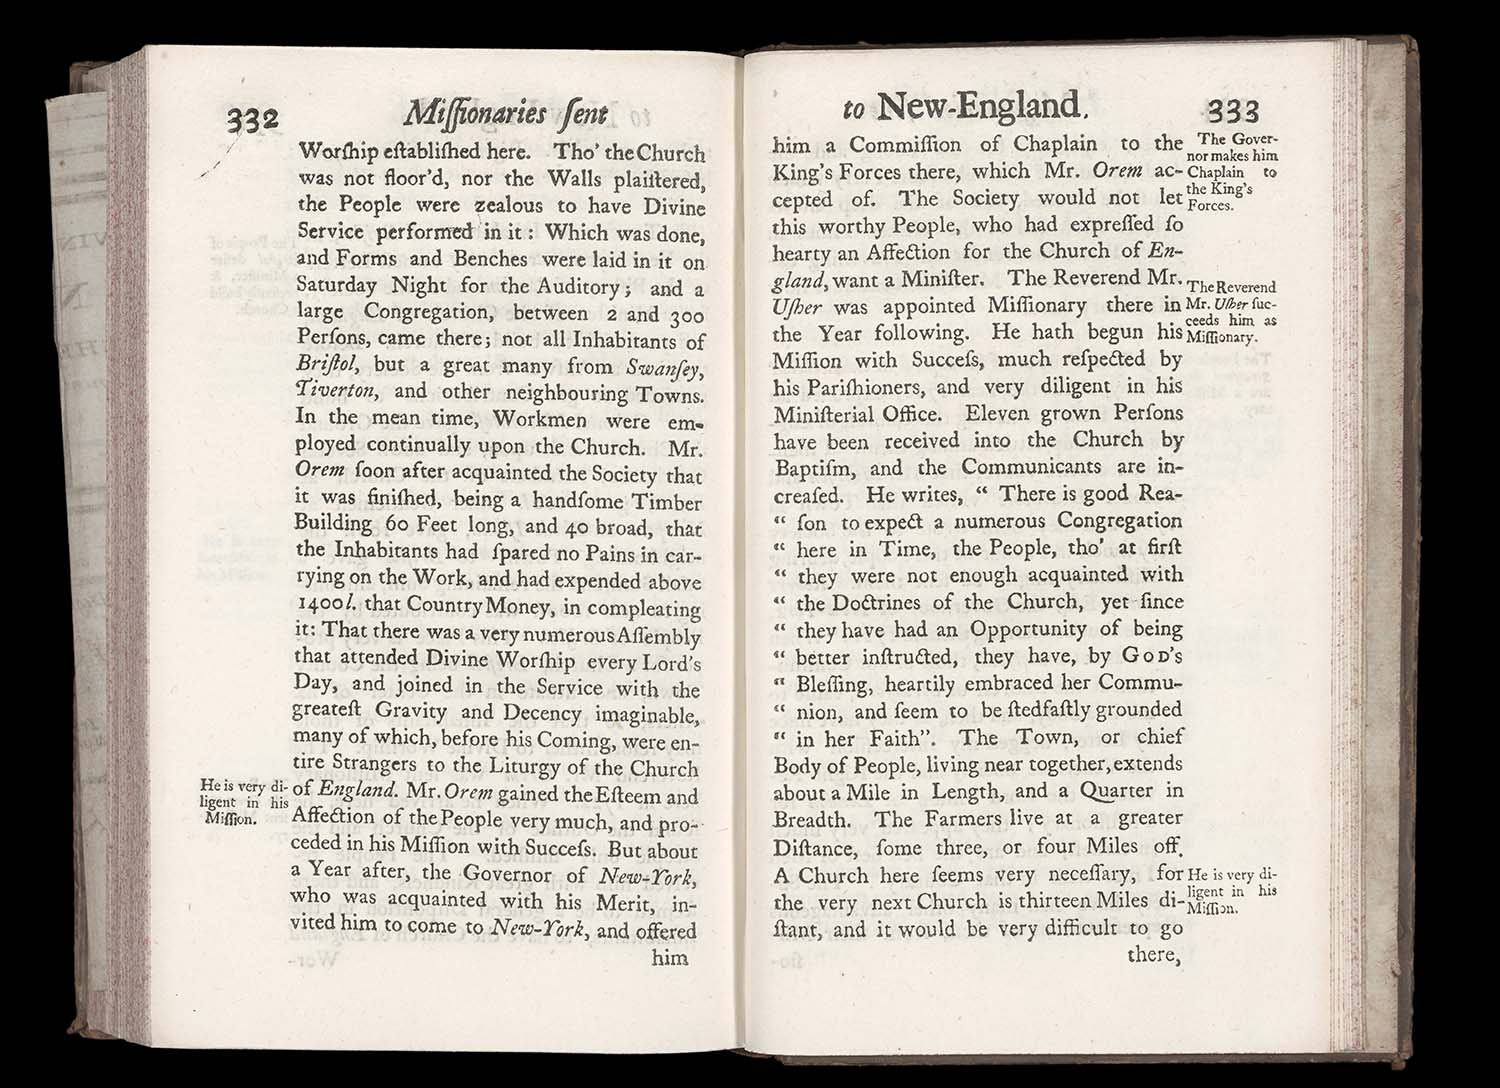 332
Miſſionaries ſent
Worſhip eſtabliſhed here. Tho' the Church
was not floor'd, nor the Walls plaiſtered,
the People were zealous to have Divine
Service performed in it: Which was done,
and Forms and Benches were laid in it on
Saturday Night for the Auditory; and a
large Congregation, between 2 and 300
Perſons, came there; not all Inhabitants of
Briſtol, but a great many from Swanſey,
Tiverton, and other neighbouring Towns.
In the mean time, Workmen were em-
ployed continually upon the Church. Mr.
Orem ſoon after acquainted the Society that
it was finiſhed, being a handſome Timber
Building 60 Feet long, and 40 broad, that
the Inhabitants had ſpared no Pains in car-
rying on the Work, and had expended above
1400l. that Country Money, in compleating
it: That there was a very numerous Aſſembly
that attended Divine Worſhip every Lord's
Day, and joined in the Service with the
greateſt Gravity and Decency imaginable,
many of which, before his Coming, were en-
tire Strangers to the Liturgy of the Church
of England. Mr. Orem gained the Eſteem and
Affection of the People very much, and pro-
ceded in his Miſſion with Succeſs. But about
a Year after, the Governor of New-York,
who was acquainted with his Merit, in-
vited him to come to New-York, and offered
him
He is very di-
ligent in his
Miſſion.
to New-England.
333
him a Commiſſion of Chaplain to the
King's Forces there, which Mr. Orem ac-
cepted of. The Society would not let
this worthy People, who had expreſſed ſo
hearty an Affection for the Church of En-
gland, want a Miniſter. The Reverend Mr.
Uſher was appointed Miſſionary there in
the Year following. He hath begun his
Miſſion with Succeſs, much reſpected by
his Pariſhioners, and very diligent in his
Miniſterial Office. Eleven grown Perſons
have been received into the Church by
Baptiſm, and the Communicants are in-
creaſed. He writes, “ There is good Rea-
“ ſon to expect a numerous Congregation
“ here in Time, the People, tho' at firſt
“ they were not enough acquainted with
“ the Doctrines of the Church, yet ſince
“ they have had an Opportunity of being
“ better inſtructed, they have, by GOD's
“ Bleſſing, heartily embraced her Commu-
“ nion, and ſeem to be ſtedfaſtly grounded
“ in her Faith”. The Town, or chief
Body of People, living near together, extends
about a Mile in Length, and a Quarter in
Breadth. The Farmers live at a greater
Diſtance, ſome three, or four Miles off.
A Church here ſeems very neceſſary, for
the very next Church is thirteen Miles di-
ſtant, and it would be very difficult to go
there,
The Gover-
nor makes him
Chaplain to
the King's
Forces.
The Reverend
Mr. Uſher ſuc-
ceeds him as
Miſſionary.
He is very di-
ligent in his
Miſſion.